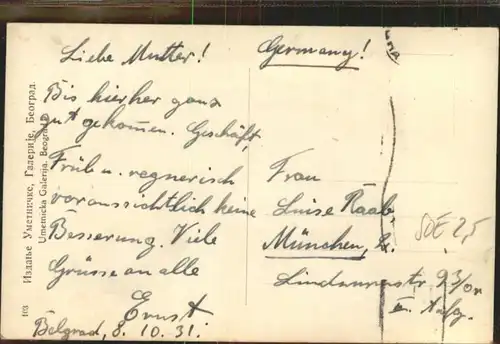 Liebe Mutter!
Bis hierher ganz
gut gekommen. Geschäft,
Früh u. regnerisch
voraussichtlich keine
Besserung. Viele
Grüsse an alle
Ernst
Belgrad, 8. 10. 31.
Germany!
Frau
Luise Raab,
München,
Lindwurmstr. 93/
II. Aufg.
SOE 2,5
Издање Уметничке, Галерије, Београд.
Umetnicka Galerija. Beograd
103